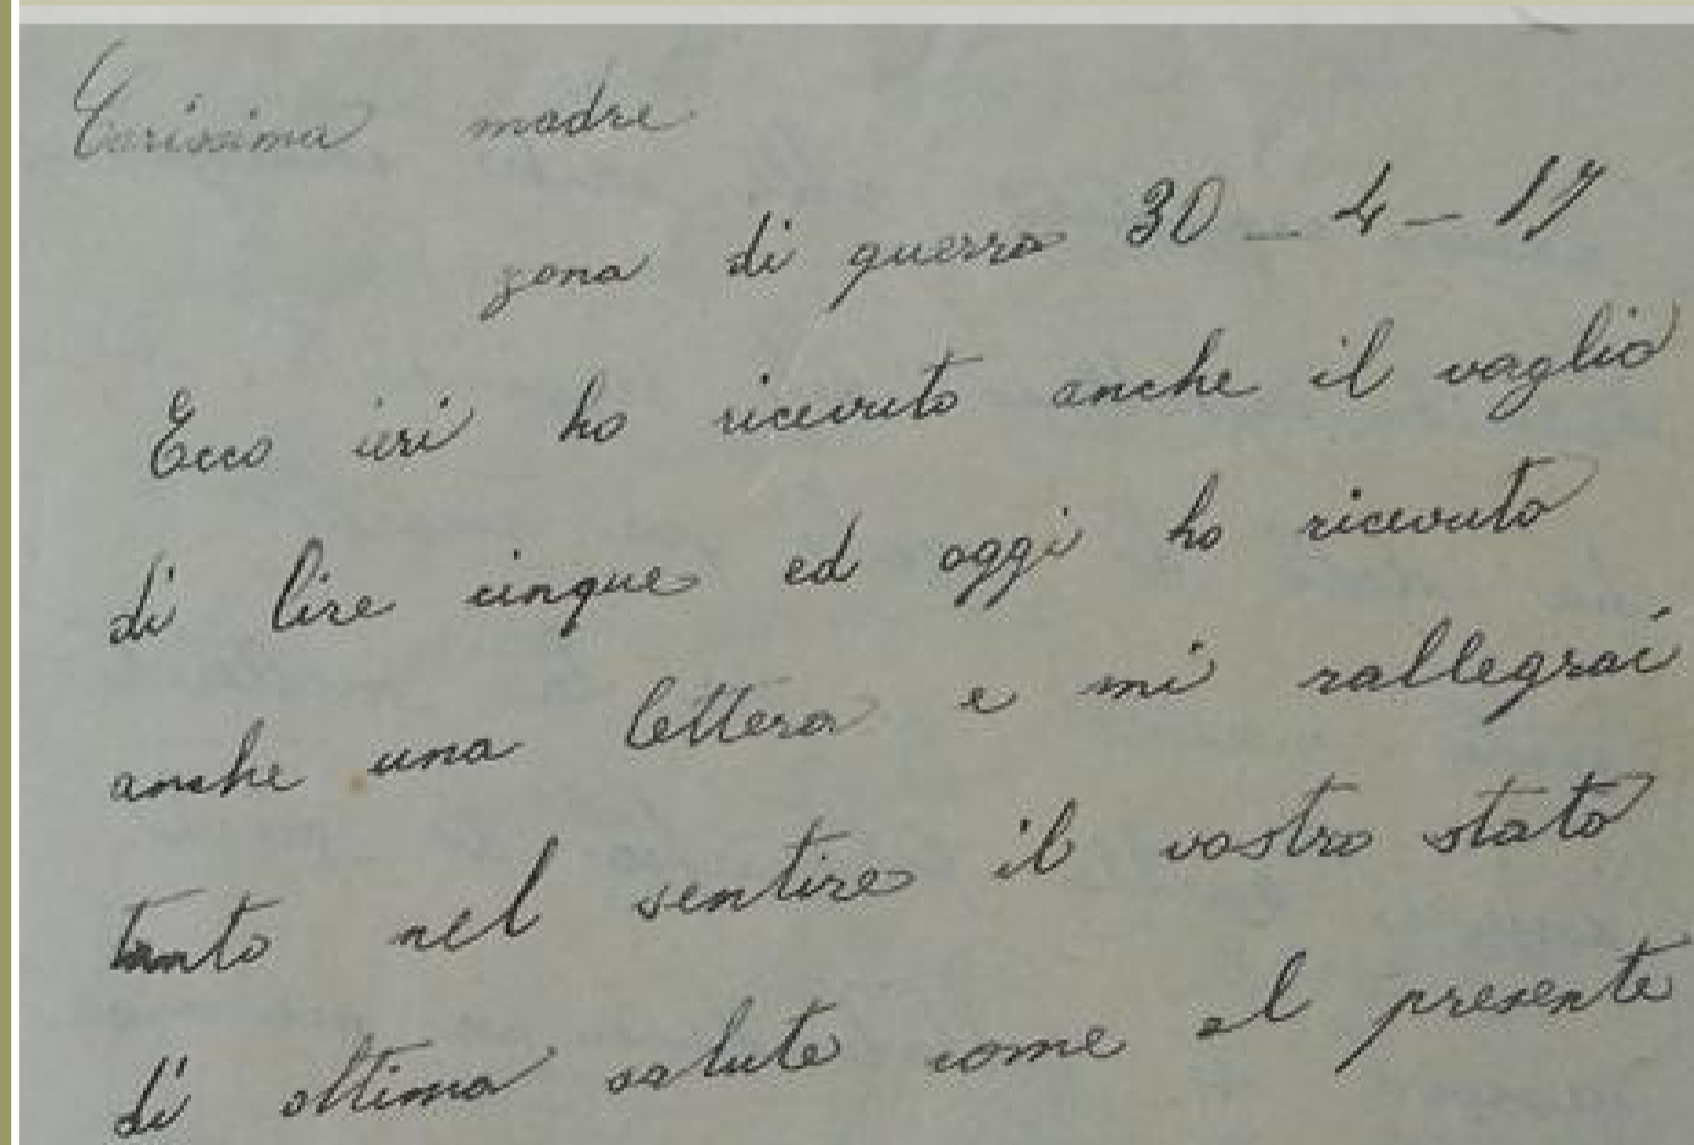 Carissima madre
zona di guerra 30 - 4 - 17
Ecco ieri ho ricevuto anche il vaglio
di lire cinque ed oggi ho ricevuto
anche una lettera e mi rallegrai
tanto nel sentire il vostro stato
di ottima salute come al presente